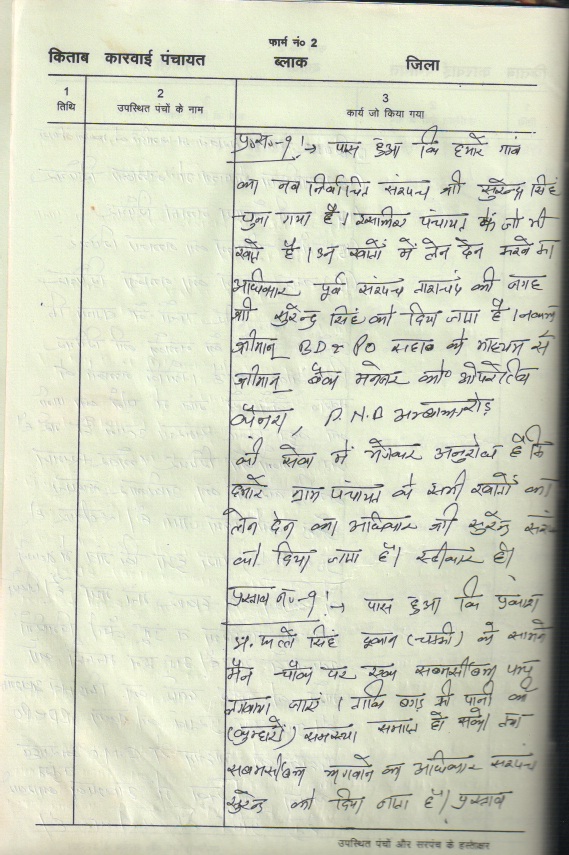 फार्म नं० 2
किताब कारवाई पंचायत ब्लाक जिला
1 2 3
तिथि उपस्थित पंचों के नाम कार्य जो किया गया
प्र.स.-१ !→ पास हुआ कि हमारे गांव
का नव निर्वाचित सरपंच श्री सुरेन्द्र सिंह
चुना गया है। इसलिए पंचायत के जो भी
खाते है। उन खातों में लेन देन करने का
अधिकार पूर्व सरपंच ताराचंद की जगह
श्री सुरेन्द्र सिंह को दिया जाता है। नकल
श्रीमान् BD & PO साहब के माध्यम से
श्रीमान् बैंक मनेजर को० ओपरेटिव
P.N.B अम्बाला रोड़
की सेवा में भेजकर अनुरोध है कि
हमारे ग्राम पंचायत के सभी खातों का
लेन देन का अधिकार श्री सुरेन्द्र सरपंच
को दिया जाता है। स्वीकार है।
प्रस्ताव न०-१ !→ पास हुआ कि प्रकाश
पु. फत्ते सिंह दुकान (चक्की) के सामने
मैन चौंक पर एक सबमर्सीबल पम्प
लगवाया जाए। ताकि की पानी की
(कुम्हारों) समस्या समाप्त हो सके। तथा
सबमर्सीबल लगवाने का अधिकार सरपंच
सुरेन्द्र को दिया जाता है। प्रस्ताव
उपस्थित पंचों और सरपंच के हस्ताक्षर